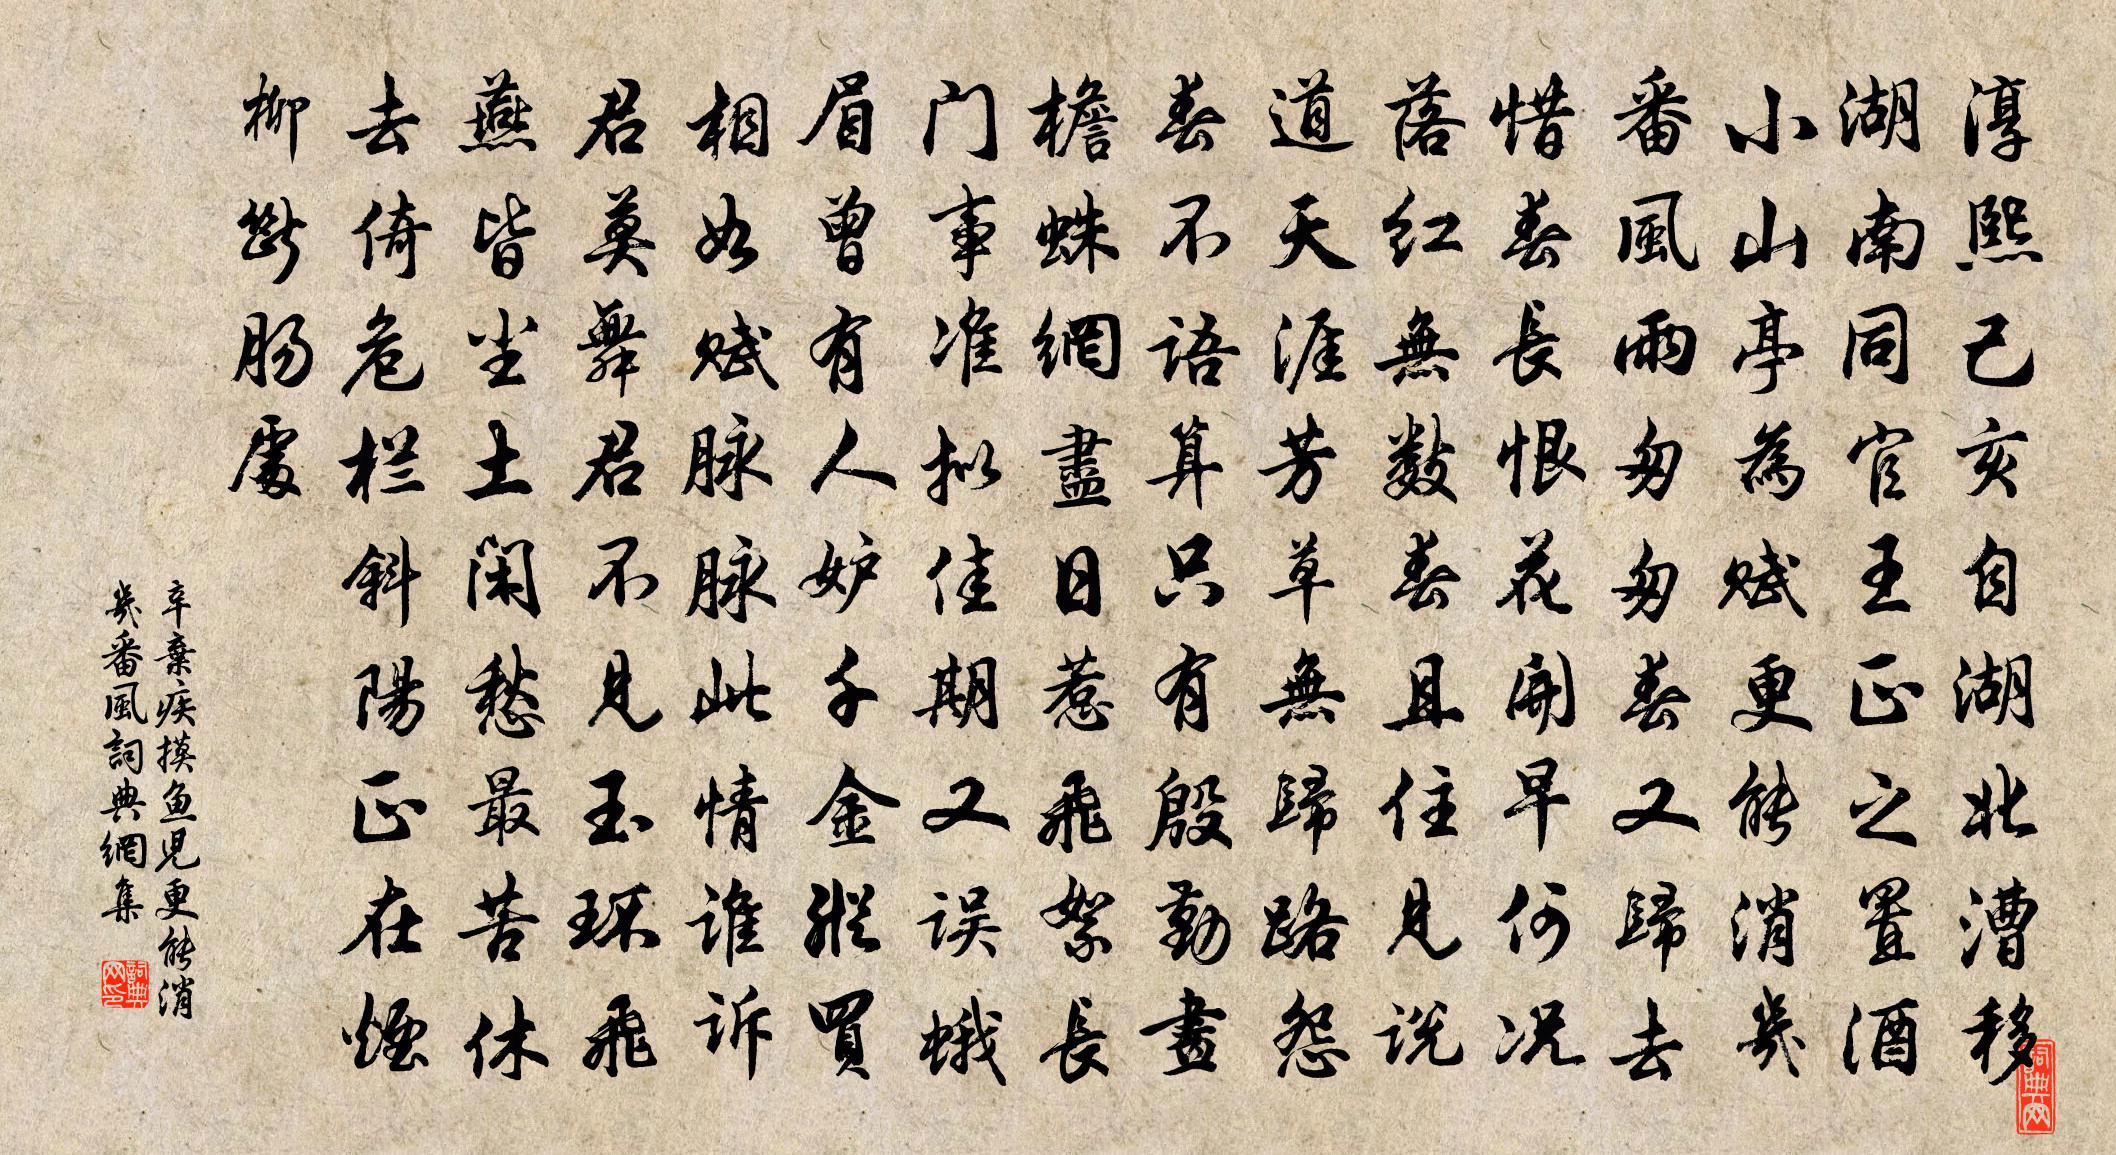 淳熙己亥自湖北漕移
湖南同官王正之置酒
小山亭為賦更能消幾
番風雨匆匆春又歸去
惜春長恨花開早何况
落红無數春且住見说
道天涯芳草無歸路怨
春不语算只有殷勤畫
檐蛛網盡日惹飛絮長
门事准拟佳期又误蛾
眉曾有人妒千金縱買
相如赋脉脉此情谁诉
君莫舞君不見玉环飛
燕皆尘土闲愁最苦休
去倚危栏斜陽正在煙
柳斷肠處
辛棄疾摸鱼児更能消
幾番風詞典網集
詞典网印
詞典网